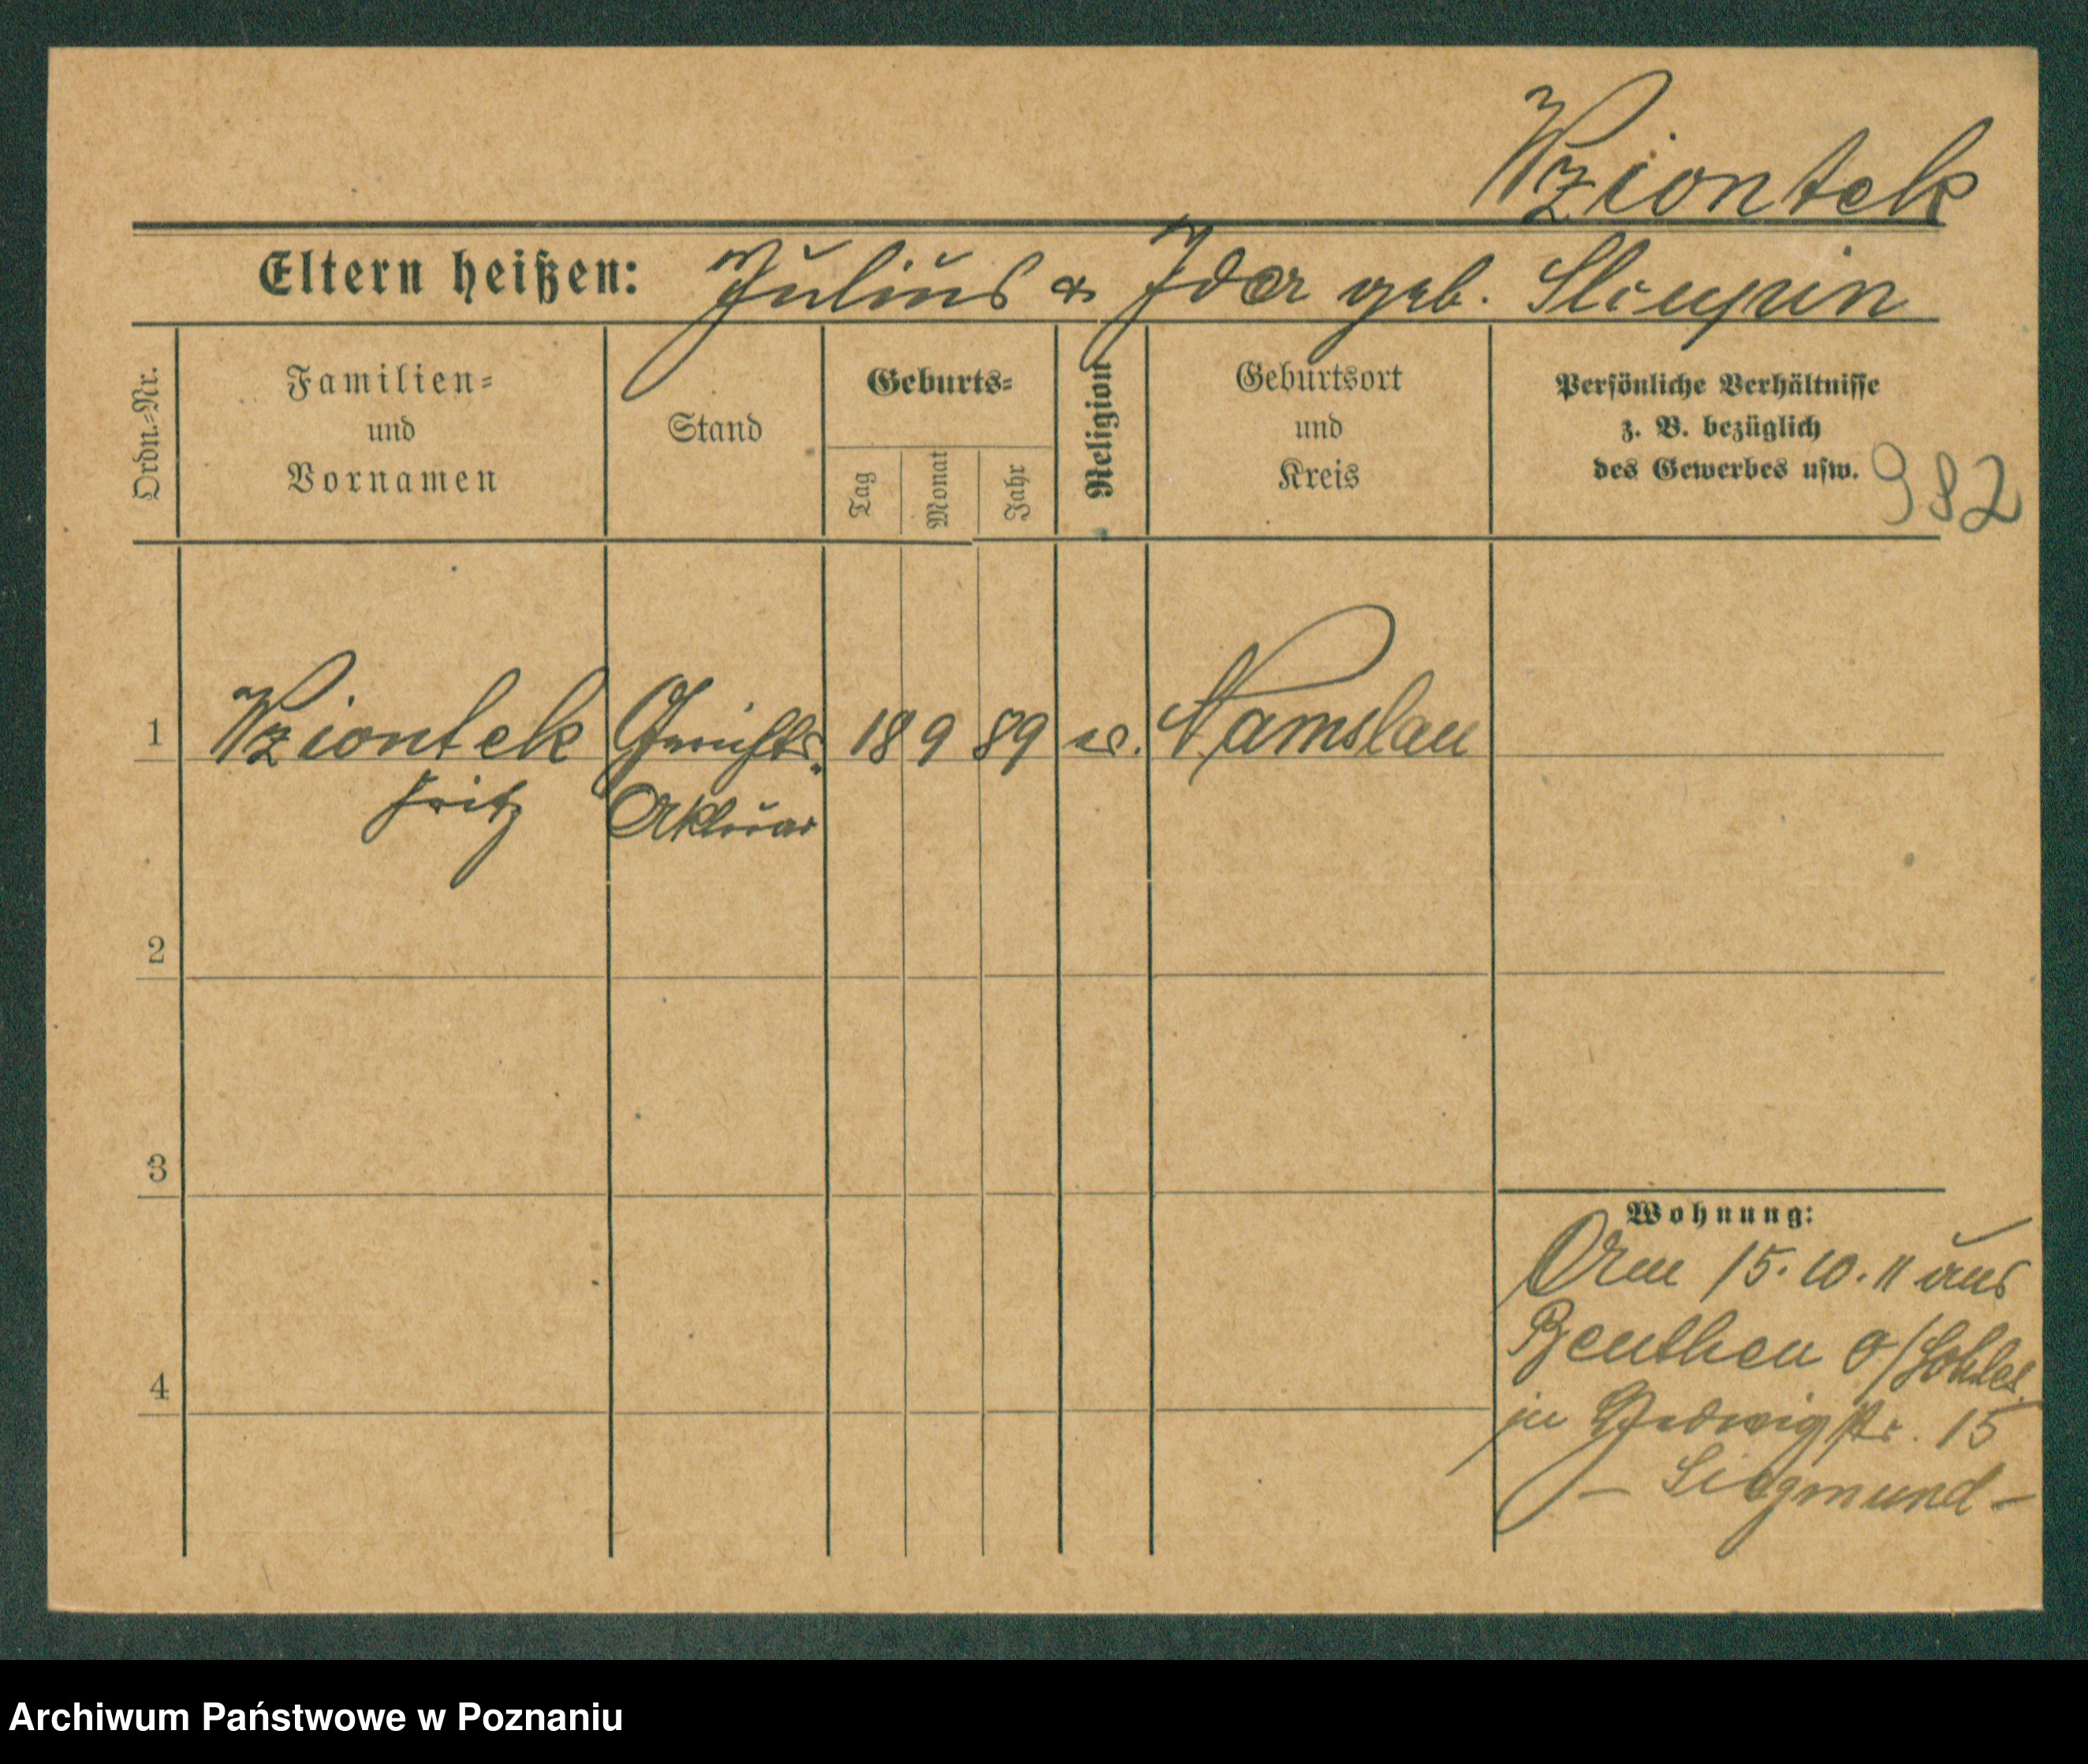 Wziontek
Eltern heißen: Julius & Ida geb. Sloupin
Ordn.-Nr.
Familien-
und
Vornamen
Stand
Geburts-
Tag
Monat
Jahr
Religion
Geburtsort
und
Kreis
Persönliche Verhältnisse
z. B. bezüglich
des Gewerbes usw.
982
1 Wziontek Gerichts- 18 9 89 ev. Namslau
Fritz Aktuar
2
3
4
Wohnung:
Am 15. 10. 11 aus
Beuthen O/Schles.
in Hedwigstr. 15
– Siegmund –
Archiwum Państwowe w Poznaniu